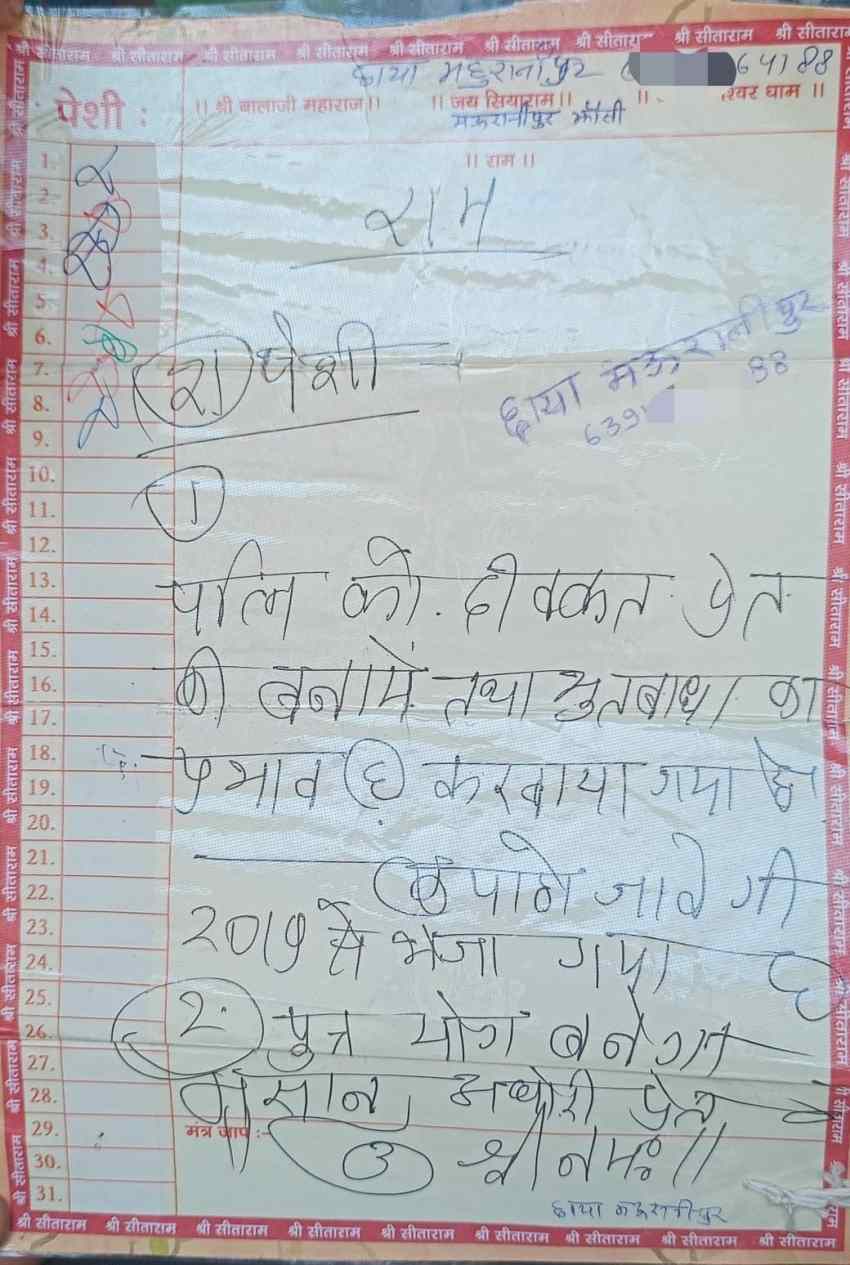 श्री सीताराम श्री सीताराम श्री सीताराम श्री सीताराम श्री सीताराम श्री सीताराम श्री सीताराम श्री सीताराम श्री सीताराम
छाया महुरानीपुर 64188
पेशी : ।। श्री बालाजी महाराज।। ।। जय सियाराम।। ।। श्वर धाम ।।
मऊरानीपुर झाँसी
।। राम ।।
राम
1.
2.
3.
4.
5.
6.
7.
8.
9.
10.
11.
12.
13.
14.
15.
16.
17.
18.
19.
20.
21.
22.
23.
24.
25.
26.
27.
28.
29.
30.
31.
पेशी
छाया मऊरानीपुर
639 88
1
पत्नि को दीक्कत प्रेत
की बनामें तथा भुतबाधा का
प्रभाव है करवाया गया है
पागे जावेगी
2019 से भेजा गया है
2. पुत्र योग बनेगा
मसान, अघोरी प्रेत
मंत्र जाप :-
3 श्री नमः।।
छाया मऊरानीपुर
श्री सीताराम श्री सीताराम श्री सीताराम श्री सीताराम श्री सीताराम श्री सीताराम श्री सीताराम श्री सीताराम श्री सीताराम